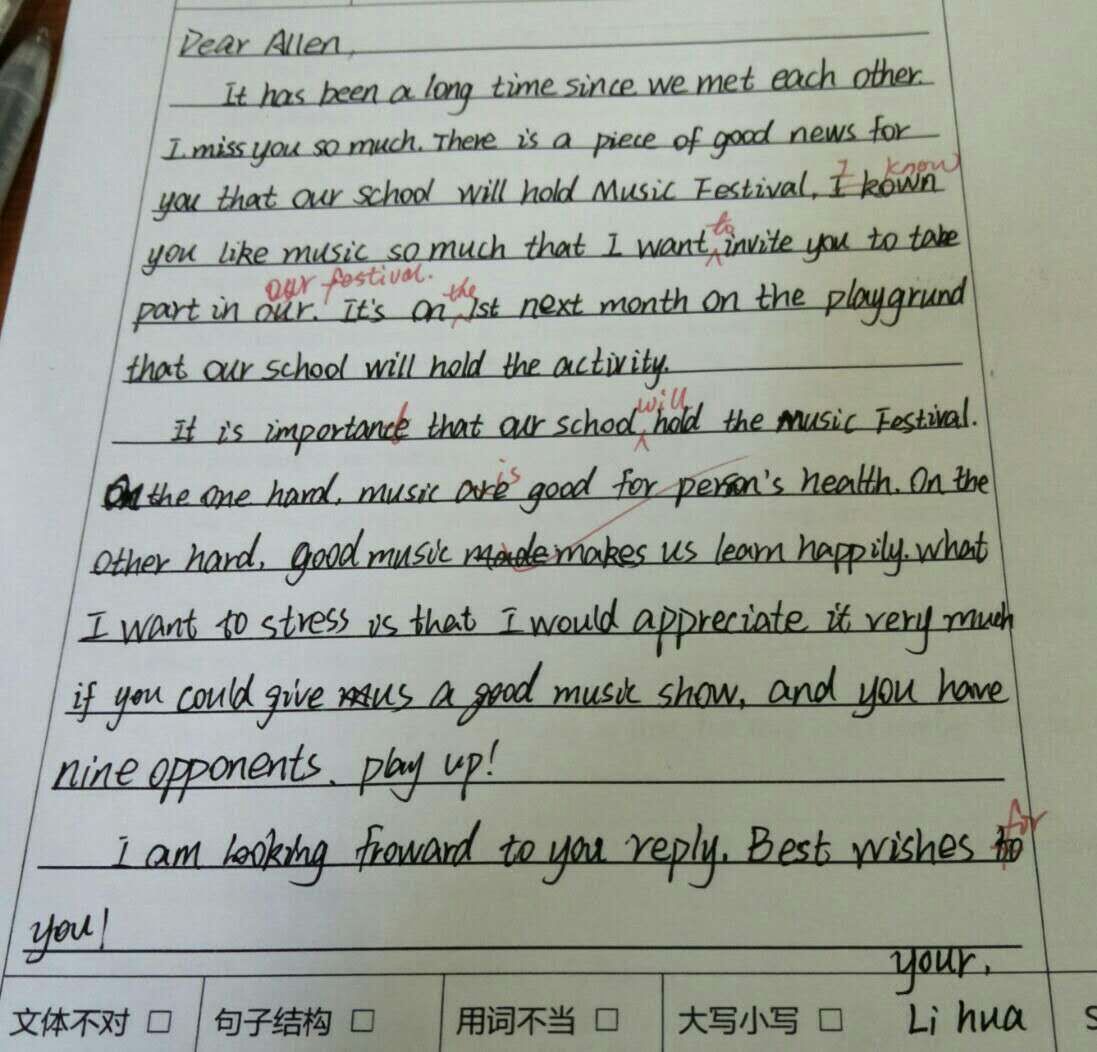 Dear Allen,
It has been a long time since we met each other.
I miss you so much. There is a piece of good news for
I know
you that our school will hold Music Festival, I kown
to
you like music so much that I want invite you to take
our festival. the
part in our. It's on 1st next month on the playgrund
that our school will hold the activity.
will
It is importance that our school hold the music Festival.
is
On the one hard, music are good for person's health. On the
other hard, good music made makes us learn happily. what
I want to stress is that I would appreciate it very much
if you could give us a good music show, and you have
nine opponents. play up!
for
I am looking froward to you reply. Best wishes to
you!
your,
文体不对 □ 句子结构 □ 用词不当 □ 大写小写 □ Li hua